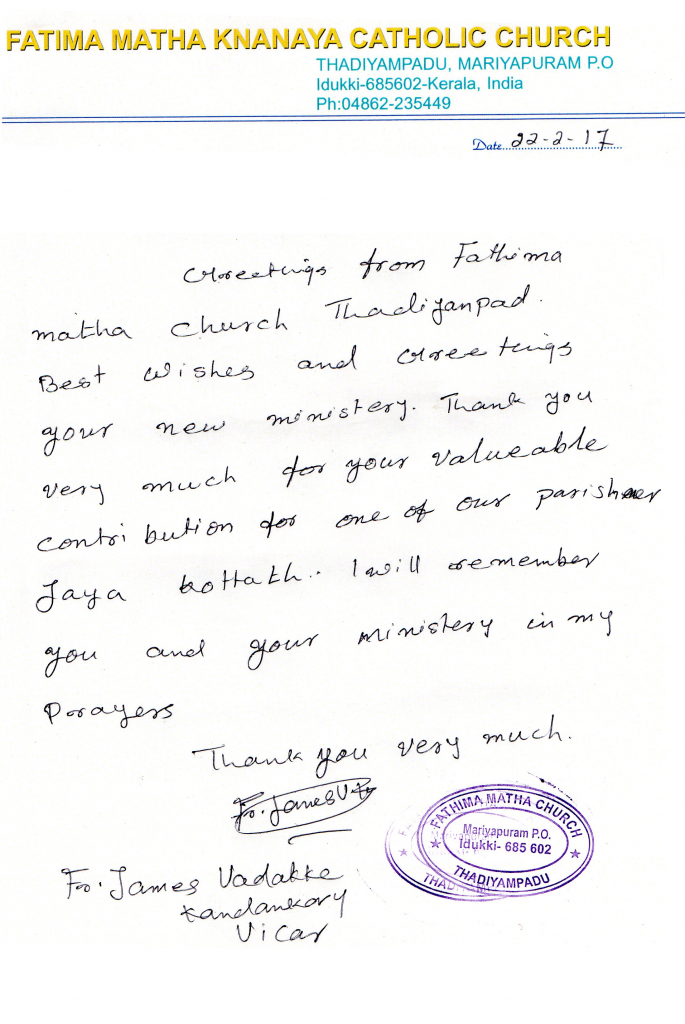 FATIMA MATHA KNANAYA CATHOLIC CHURCH
THADIYAMPADU, MARIYAPURAM P.O
Idukki-685602-Kerala, India
Ph:04862-235449
Date 22-2-17
Greetings from Fathima
matha church Thadiyanpad.
Best wishes and Greetings
your new ministery. Thank you
very much for your valueable
contribution for one of our parishner
Jaya kottath.. I will remember
you and your ministery in my
Prayers
Thank you very much.
Fr. James
Fr. James Vadakke
kandankary
Vicar
FATHIMA MATHA CHURCH
Mariyapuram P.O.
Idukki- 685 602
THADIYAMPADU